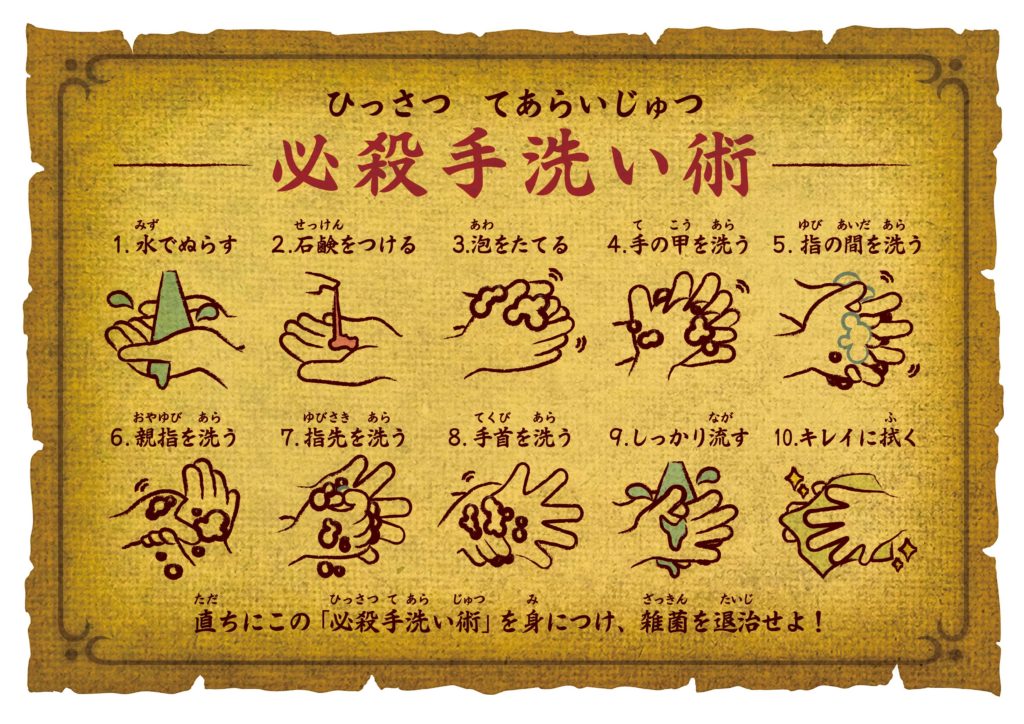 ひっさつ てあらいじゅつ
必殺手洗い術
みず
1.水でぬらす
せっけん
2.石鹸をつける
あわ
3.泡をたてる
て こう あら
4.手の甲を洗う
ゆび あいだ あら
5.指の間を洗う
おやゆび あら
6.親指を洗う
ゆびさき あら
7.指先を洗う
てくび あら
8.手首を洗う
なが
9.しっかり流す
ふ
10.キレイに拭く
ただ ひっさつ て あら じゅつ み ざっきん たいじ
直ちにこの「必殺手洗い術」を身につけ、雑菌を退治せよ！